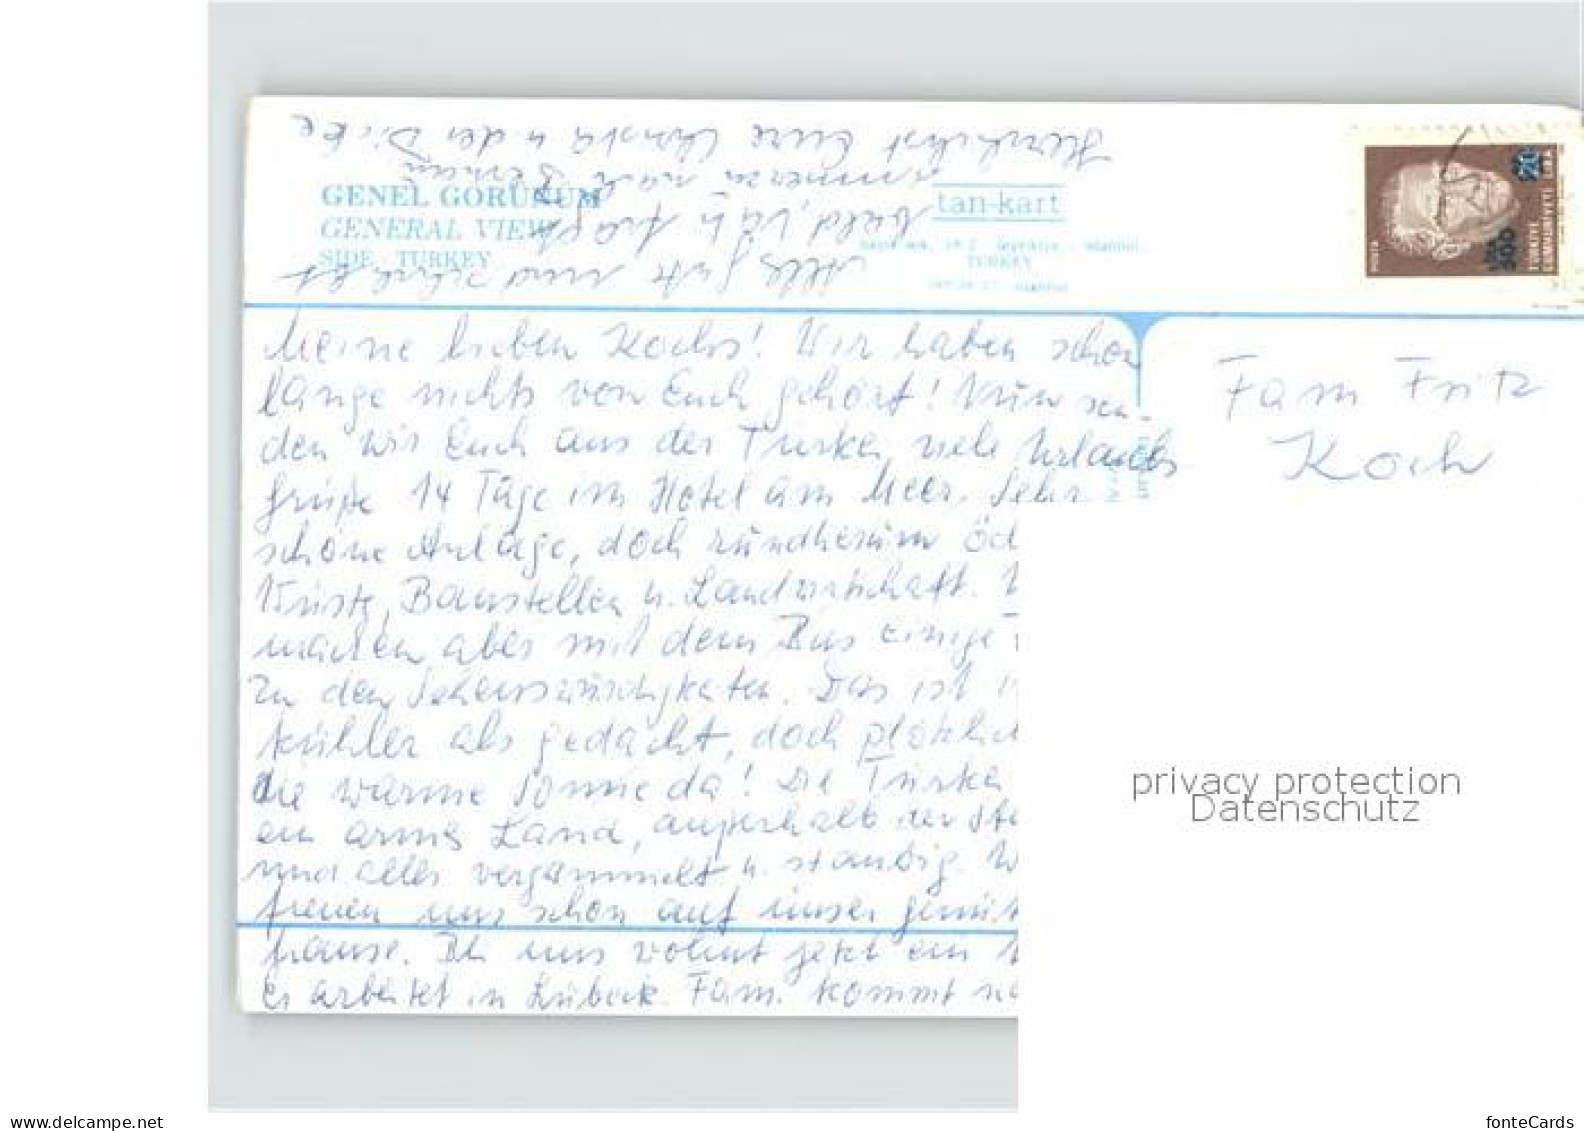 GENEL GÖRÜNÜM
GENERAL VIEW
SIDE - TURKEY
tan-kart
TURKEY
POSTA
TÜRKİYE
CUMHURİYETİ
Meine lieben Kochs! Wir haben schon
lange nichts von Euch gehört! Nun sen-
den wir Euch aus der Türkei viele Urlaubs
grüße 14 Tage im Hotel am Meer. Sehr
schöne Anlage, doch rundherum
Wüste, Baustellen u. Landwirtschaft.
machen aber mit dem Bus einige
zu den Sehenswürdigkeiten. Das ist
kühler als gedacht, doch plötzlich
die warme Sonne da! Die Türkei
ein armes Land, außerhalb der
und alles vergammelt u. staubig.
freuen uns schon auf unser
hause. Bei uns wohnt jetzt ein
er arbeitet in Lübeck. Fam. kommt
Alles gute und
bald, u. fragt
immerzu nach
Herzlichst Eure Christa u der Dicke
Fam Fritz
Koch
privacy protection
Datenschutz
www.delcampe.net
fonteCards